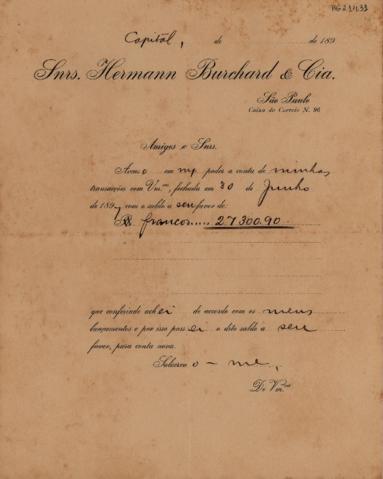 Capital, de de 189
Snrs. Hermann Burchard & Cia.
São Paulo
Caixa do Correio N. 96
Amigos e Snrs.
Accuso em mp. poder a conta de minhas
transacções com Vm.ces, fechada em 30 de Junho
de 1897 com o saldo a seu favor de:
francos..... 27300.90
que conferindo achei de accordo com os meus
lançamentos e por isso passei o dito saldo a seu
favor, para conta nova.
Subscrevo-me,
De Vm.ces